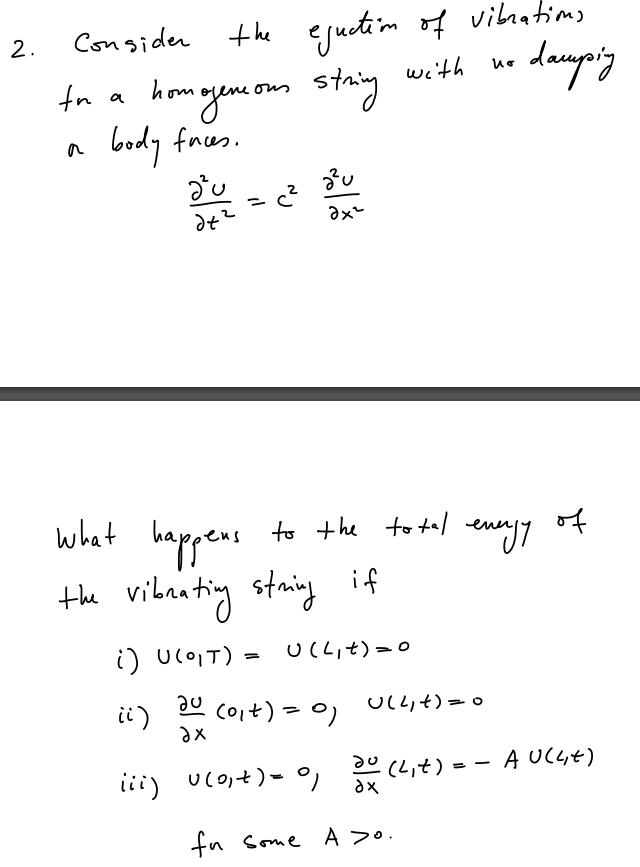 2. Consider the equation of vibrations
for a homogeneous string with no damping
or body forces.
∂²u/∂t² = c² ∂²u/∂x²
What happens to the total energy of
the vibrating string if
i) U(0,T) = U(L,t) = 0
ii) ∂u/∂x (0,t) = 0, U(L,t) = 0
iii) U(0,t) = 0, ∂u/∂x (L,t) = - A U(L,t)
for some A > 0.